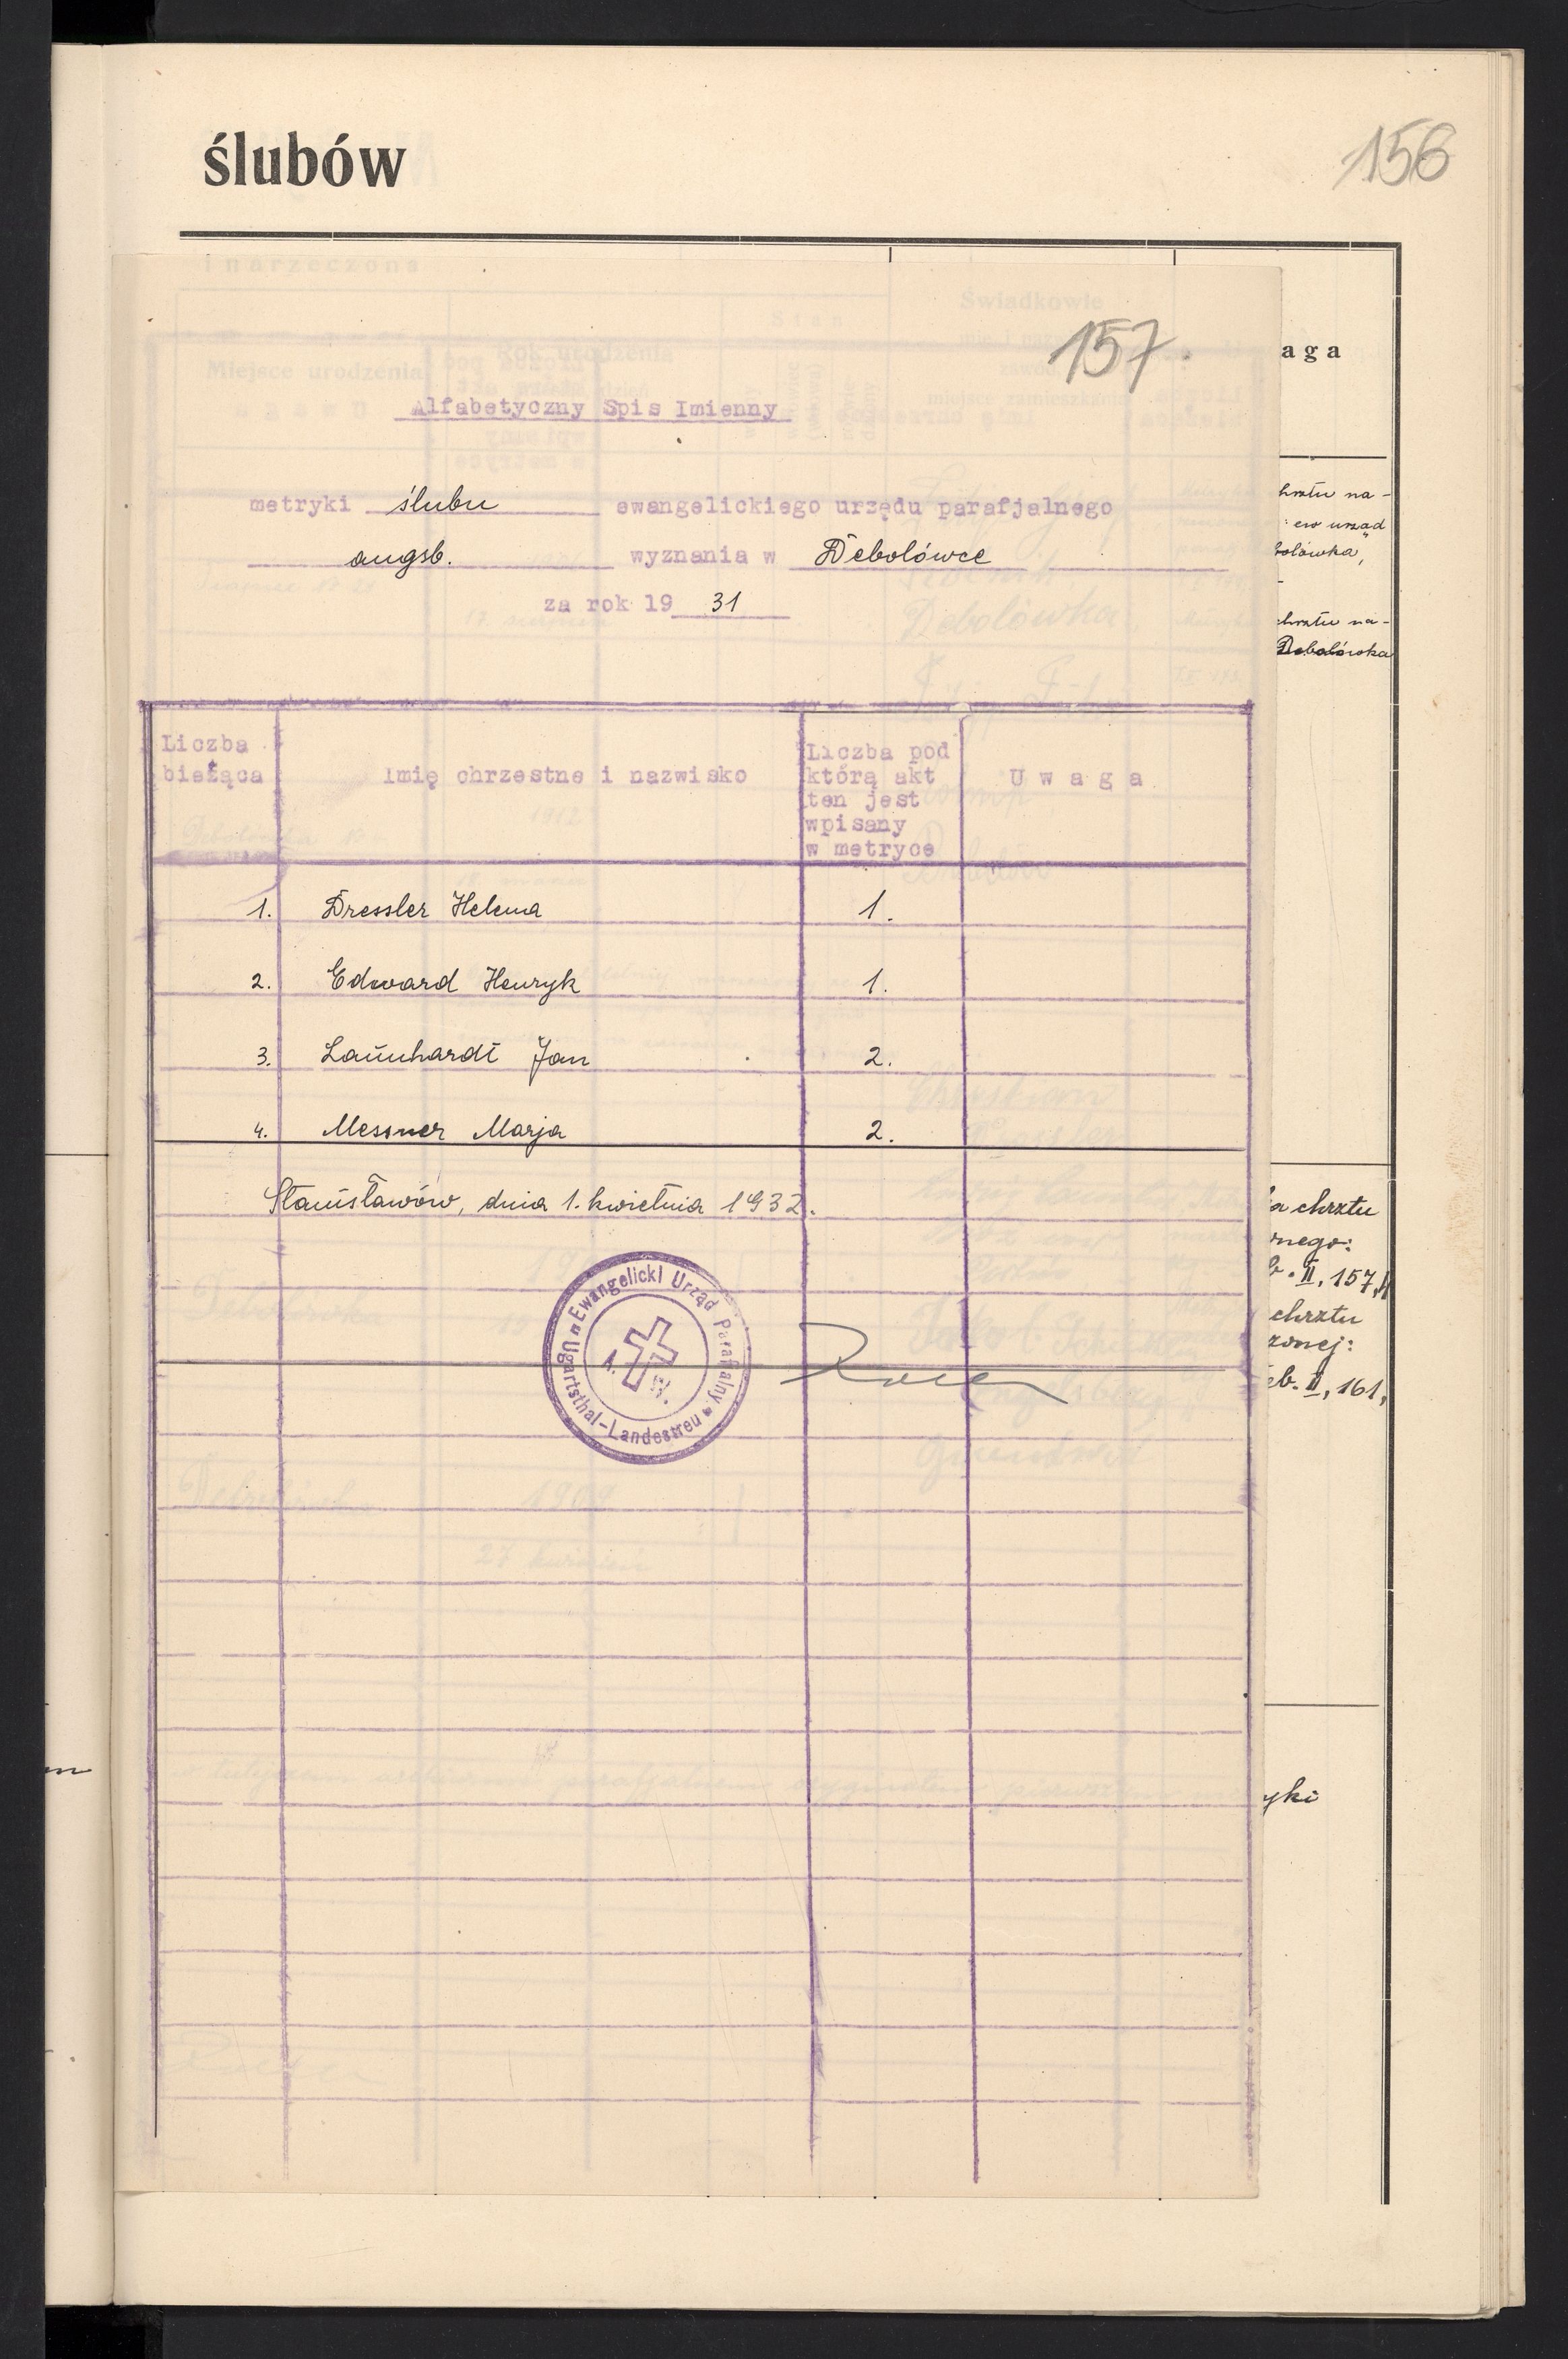 ślubów
156
157.
aga
Alfabetyczny Spis Imienny
metryki ślubu ewangelickiego urzędu parafjalnego
augsb. wyznania w Debolówce
za rok 19 31
Liczba bieżąca
Imię chrzestne i nazwisko
Liczba pod którą akt ten jest wpisany w metryce
Uwaga
1. Dressler Helena 1.
2. Edward Henryk 1.
3. Launhardt Jan 2.
4. Messner Marja 2.
Stanisławów, dnia 1. kwietnia 1932.
Ewangelicki Urząd Parafialny
Ugartsthal-Landestreu
A. W.
hrztu na-
ew urząd
bolówka,
chrztu na-
Debolówka
a chrztu
nego:
b. II, 157,
chrztu
zonej:
eb. II, 161,
yki